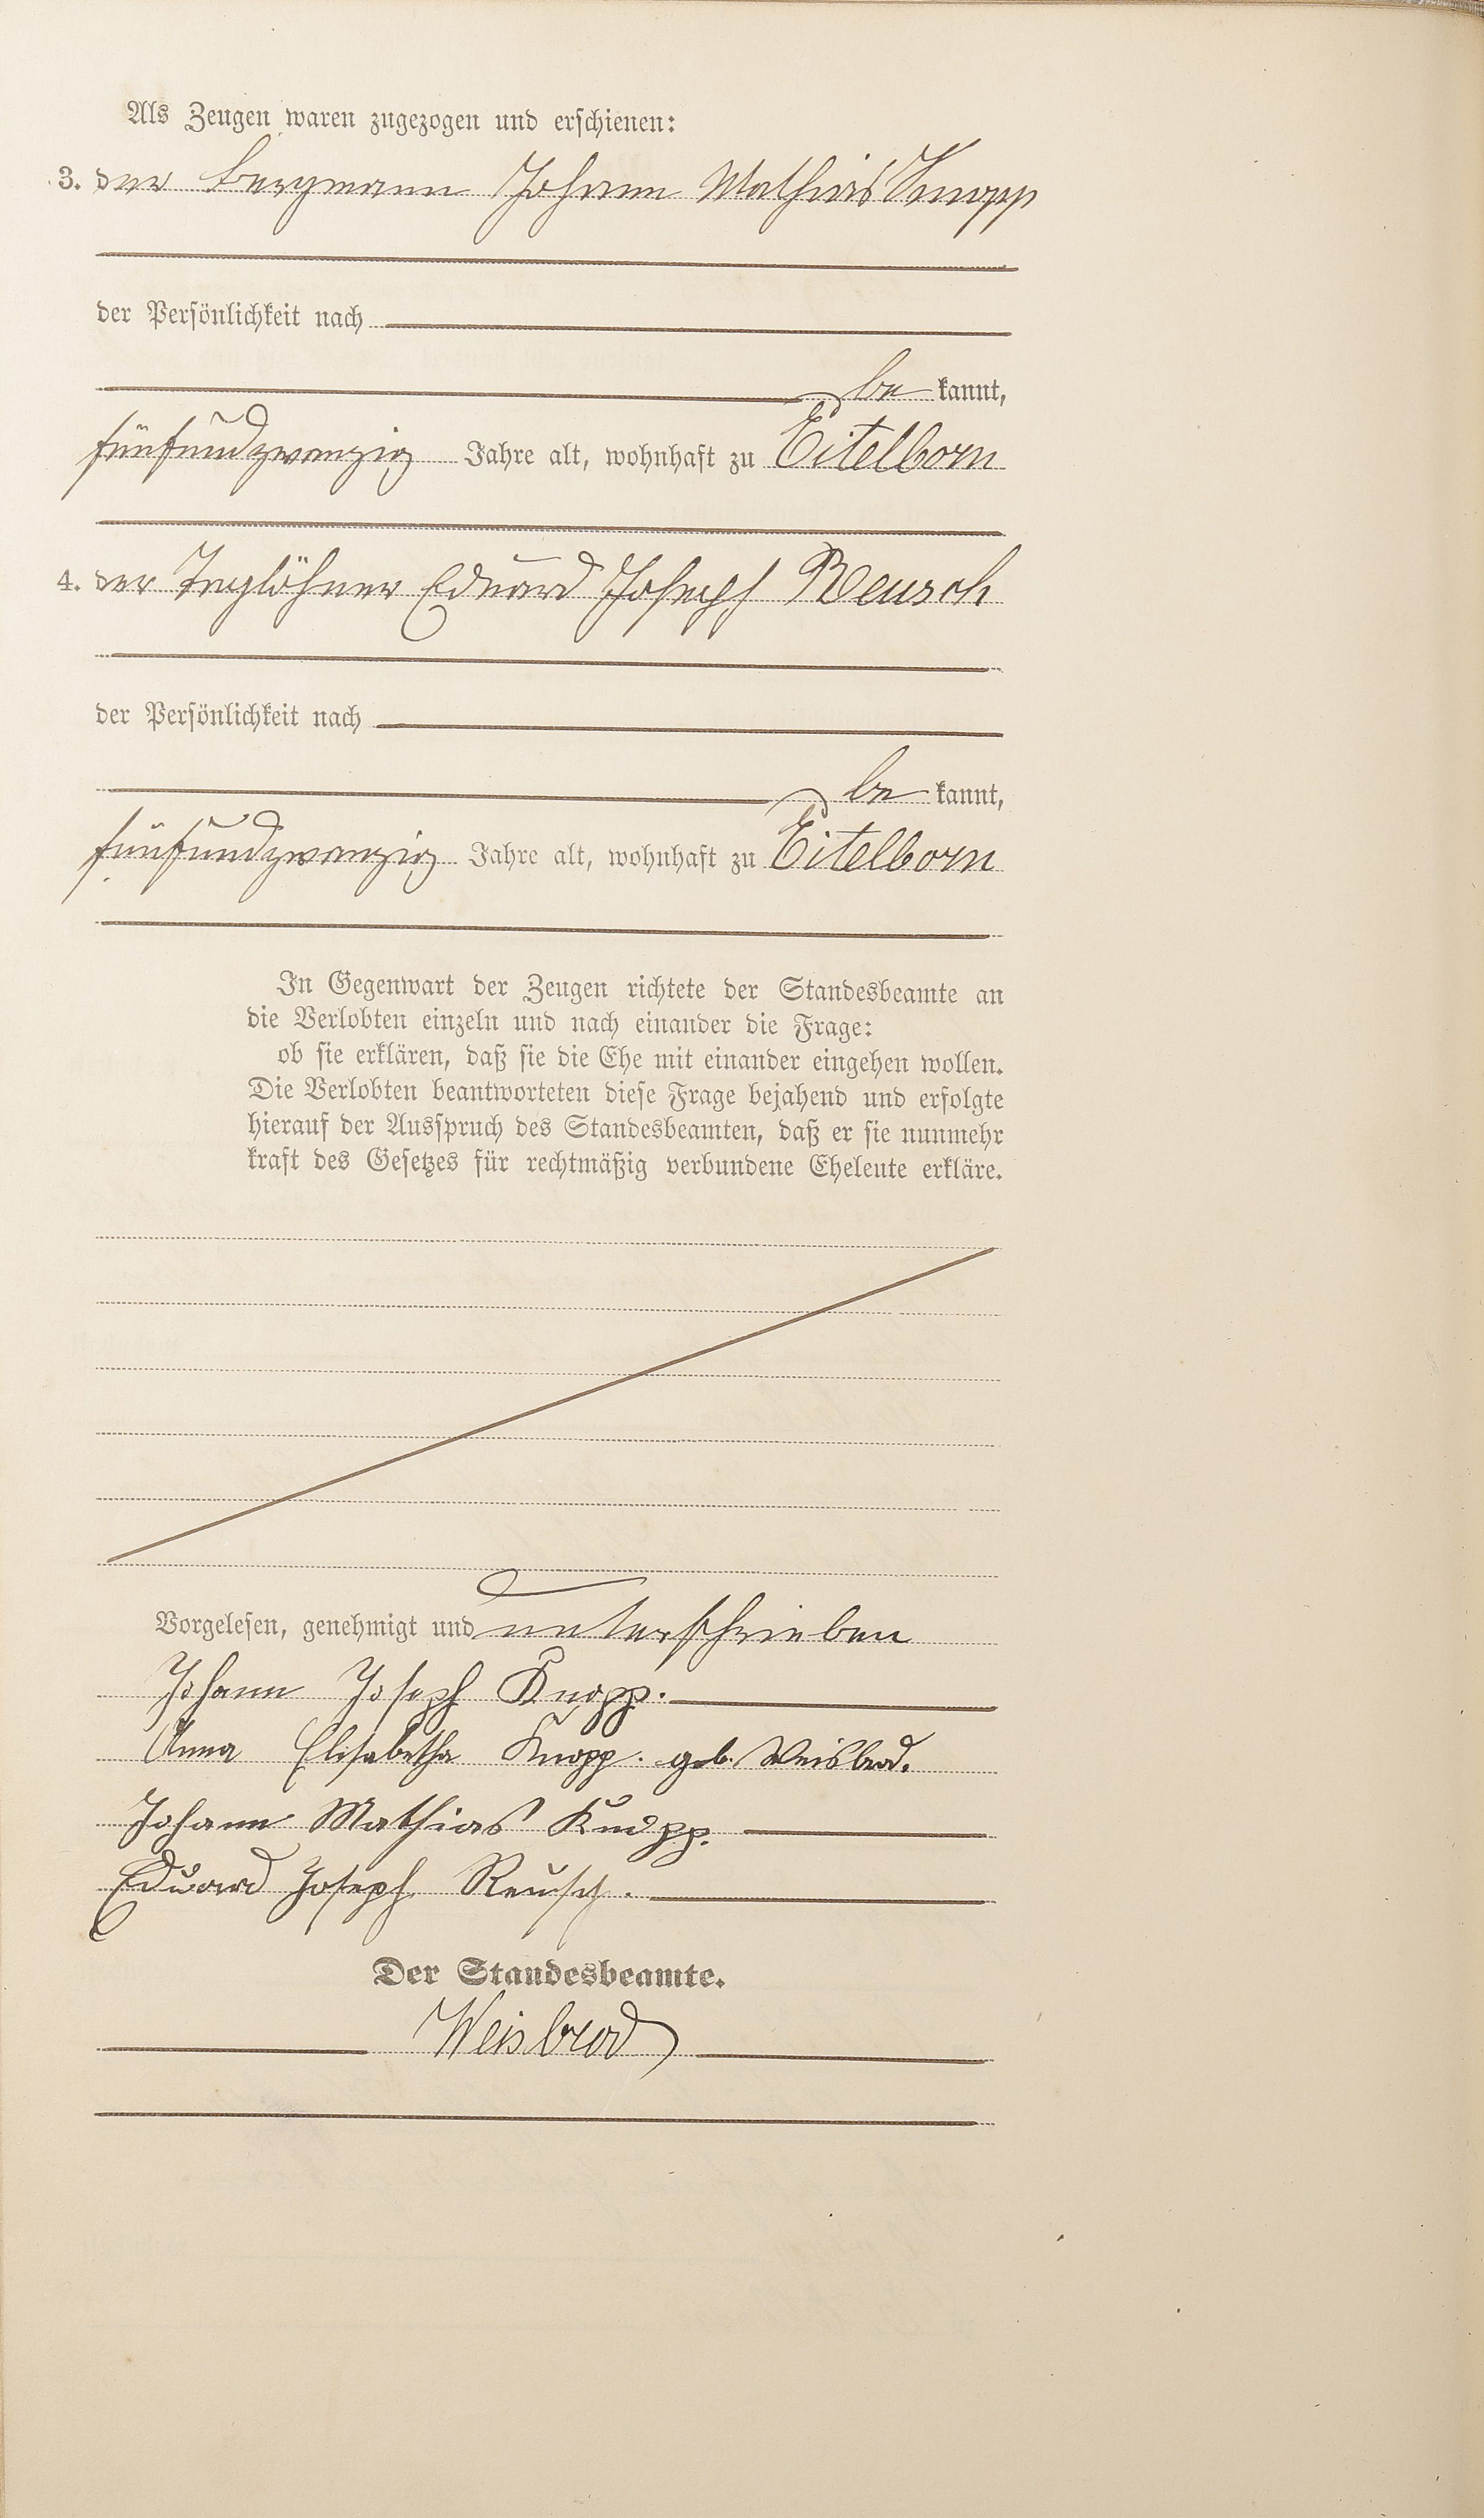 Als Zeugen waren zugezogen und erschienen:
3. der Bergmann Johann Mathias Knopp
der Persönlichkeit nach
be kannt,
fünfundzwanzig Jahre alt, wohnhaft zu Eitelborn
4. der Taglöhner Eduard Joseph Reusch
der Persönlichkeit nach
be kannt,
fünfundzwanzig Jahre alt, wohnhaft zu Eitelborn
In Gegenwart der Zeugen richtete der Standesbeamte an
die Verlobten einzeln und nach einander die Frage:
ob sie erklären, daß sie die Ehe mit einander eingehen wollen.
Die Verlobten beantworteten diese Frage bejahend und erfolgte
hierauf der Ausspruch des Standesbeamten, daß er sie nunmehr
kraft des Gesetzes für rechtmäßig verbundene Eheleute erkläre.
Vorgelesen, genehmigt und unterschrieben
Johann Joseph Knopp.
Anna Elisabetha Knopp. geb. Weisbrod.
Johann Mathias Knopp.
Eduard Joseph Reusch.
Der Standesbeamte.
Weisbrod